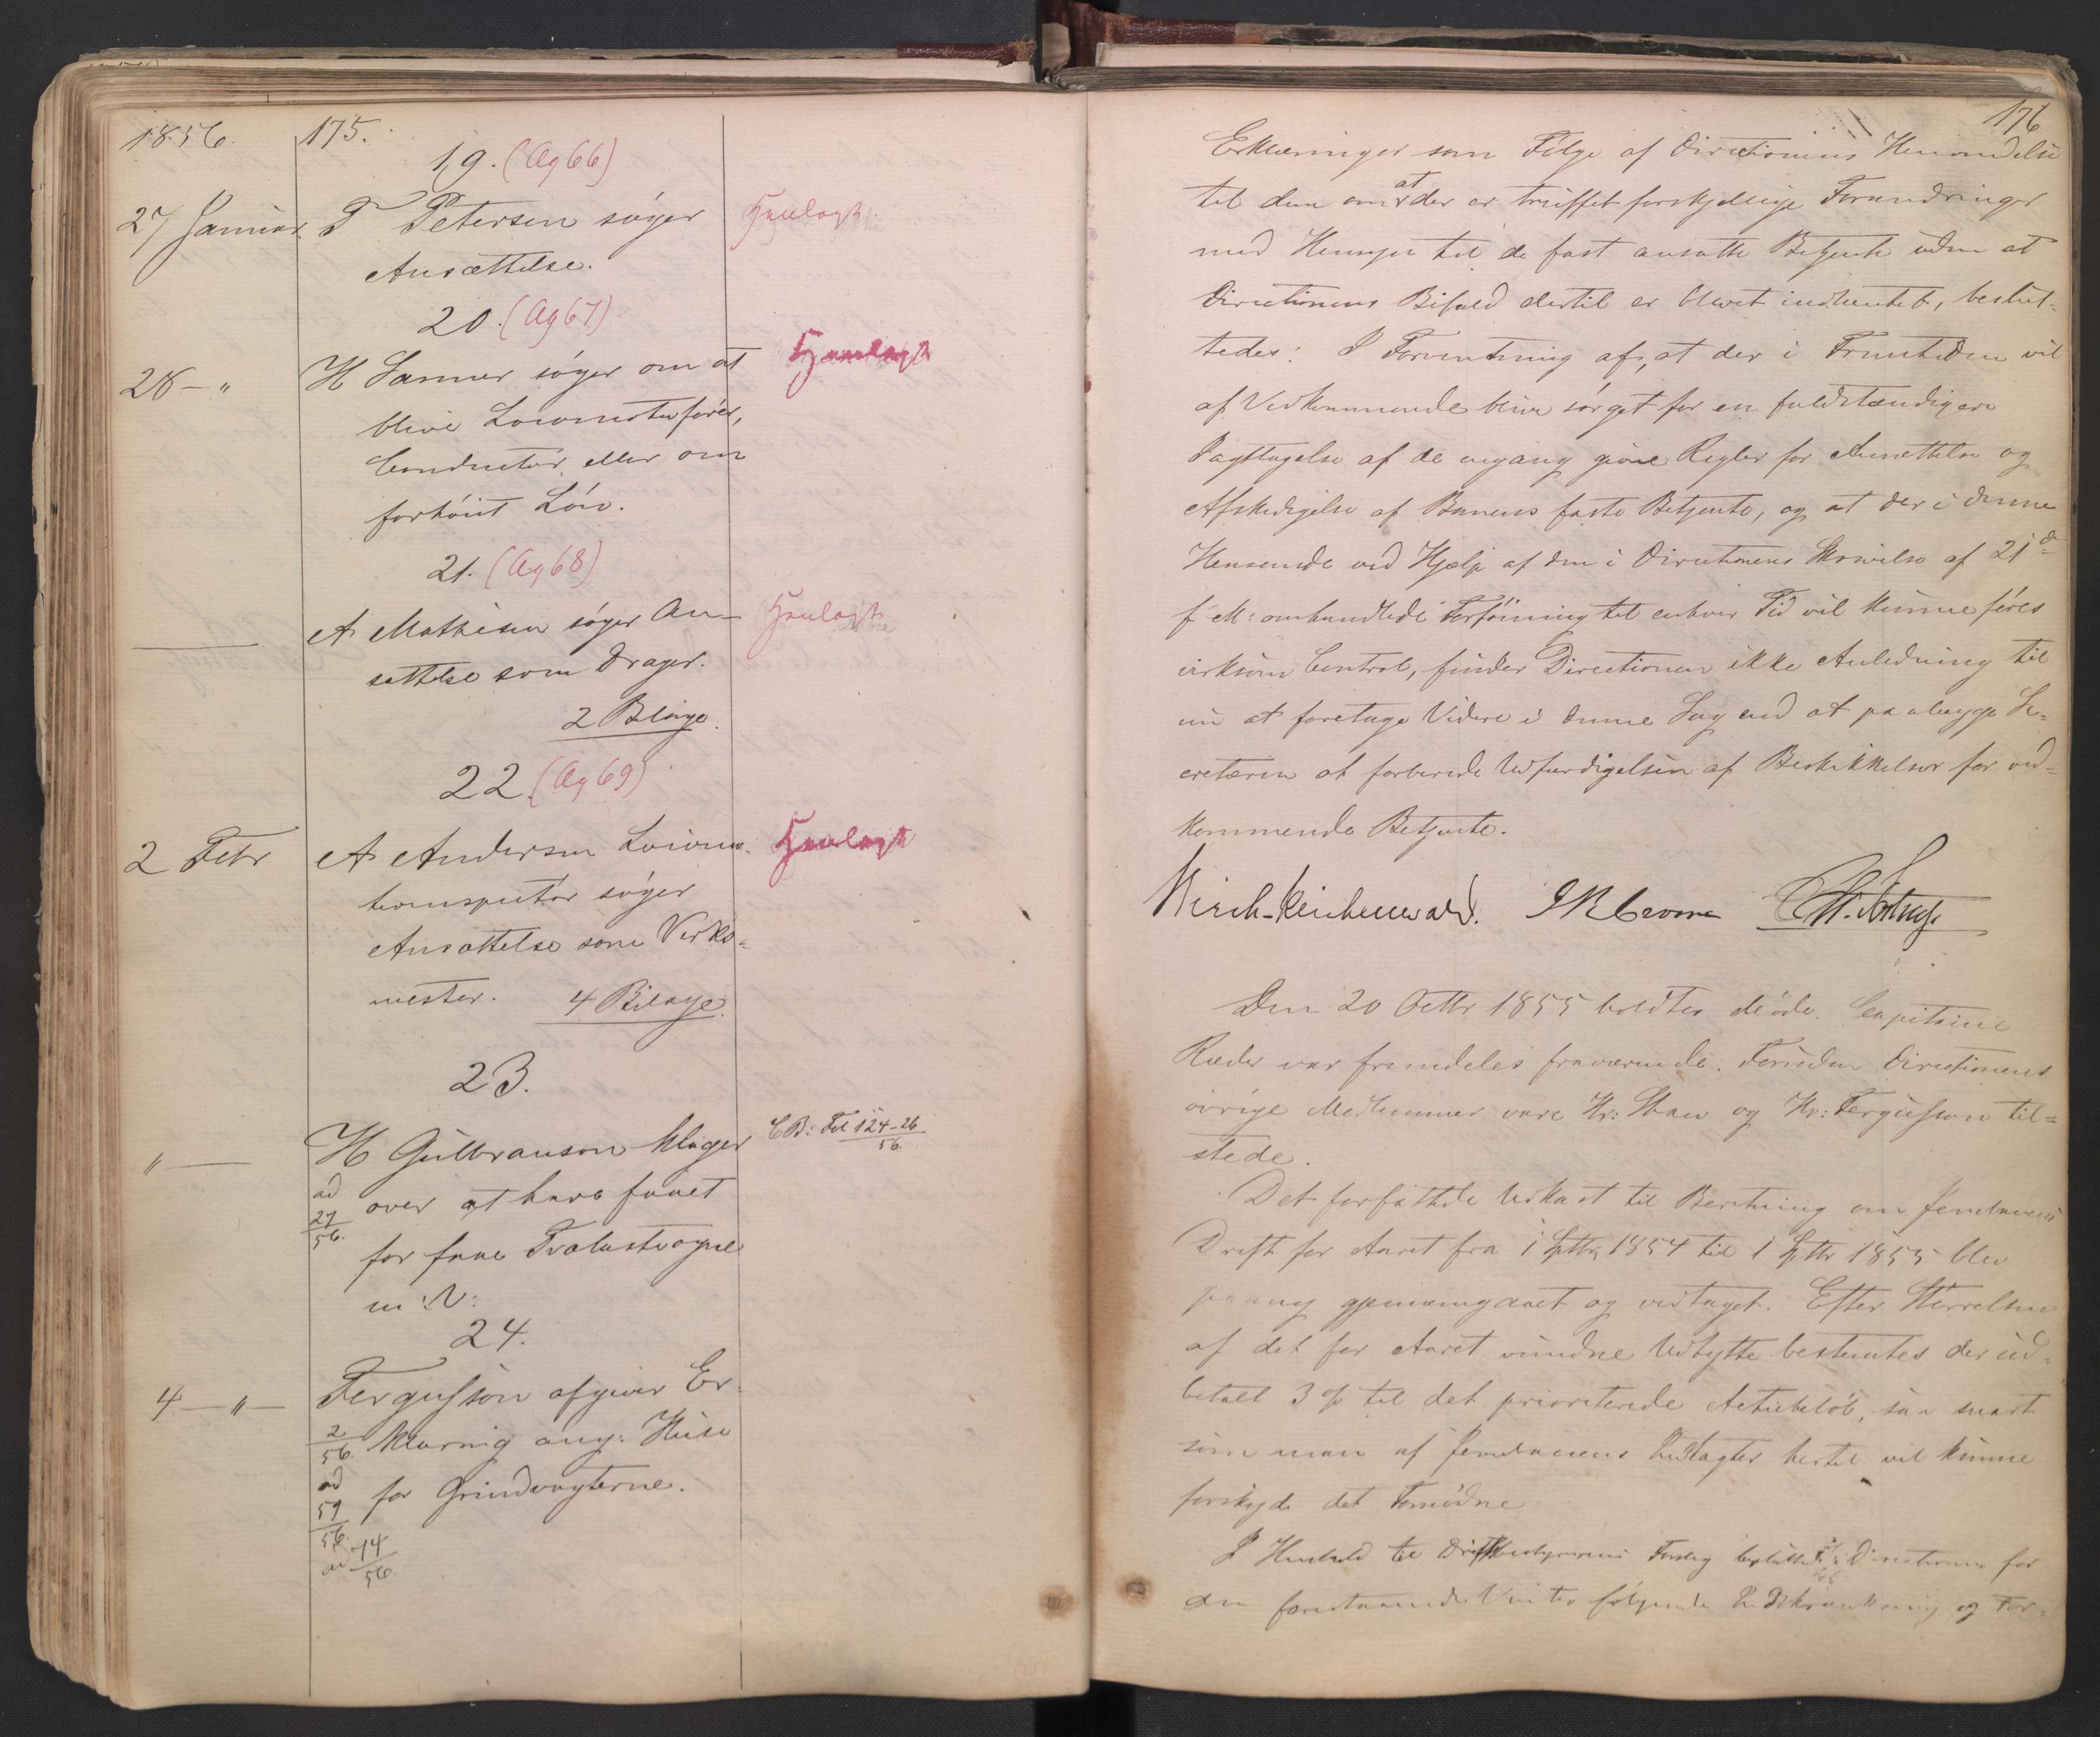 1856.
175.
19. (Ag 66)
27 Januar. T Petersen søger Henlagt
Ansættelse.
20. (Ag 67)
28 - " H Sanner søger om at Henlagt
blive Locomotivfører,
Conductør eller om
forhøiet Løn.
21. (Ag 68)
A Mathisen søger An- Henlagt
settelse som Drager.
2 Bilage.
22. (Ag 69)
2 Febr A Andersen Locomo- Henlagt
tivinspectør søger
Ansættelse som Verks-
mester. 4 Bilage.
23.
" H Gulbranson klager CB: Fol 124-26/56.
ad 27/56. over at have faaet
for faae Trælastvogne
m: V:
24.
4 - " - Fergusson afgiver Er-
2/56. klæring ang: Huse
ad 59/56. for Grindvogterne.
ad 74/56.
176
Erklæringer som Følge af Directionens Henvendelse
til dem om at der er truffet forskjellige Forandringer
med Hensyn til de fast ansatte Betjente uden at
Directionens Bifald dertil er blevet indhentet, beslut-
tedes: I Forventning af, at der i Fremtiden vil
af Vedkommende blive sørget for en fuldstændigere
Iagttagelse af de engang givne Regler for Ansættelse og
Afskedigelse af Banens faste Betjente, og at der i denne
Henseende ved Hjælp af den i Directionens Skrivelse af 21de
f: M: omhandlede Forføining til enhver Tid vil kunne føres
virksom Control, finder Directionen ikke Anledning til
nu at foretage Videre i denne Sag end at paalægge Se-
cretæren at forberede Udfærdigelsen af Beskikkelser for ved-
kommende Betjente.
Hirch-Reichenwald. J R Crowe
Den 20 Octbr 1855 holdtes Møde. Capitaine
Ræder var fremdeles fraværende. Foruden Directionens
øvrige Medlemmer vare Hr: Shaw og Hr: Fergusson til-
stede.
Det forfattede Udkast til Beretning om Jernbanens
Drift for Aaret fra 1 Septbr 1854 til 1 Septbr 1855 blev
paany gjennemgaaet og vedtaget. Efter Størrelsen
af det for Aaret vundne Udbytte bestemtes der ud-
betalt 3 % til det prioriterede Actiebeløb, saa snart
som man af Jernbanens Indtægter hertil vil kunne
forskyde det Fornødne
I Henhold til Driftsbestyrerens Forslag besluttede Directionen for
den forestaaende Vinter følgende Indskrænkning og For-